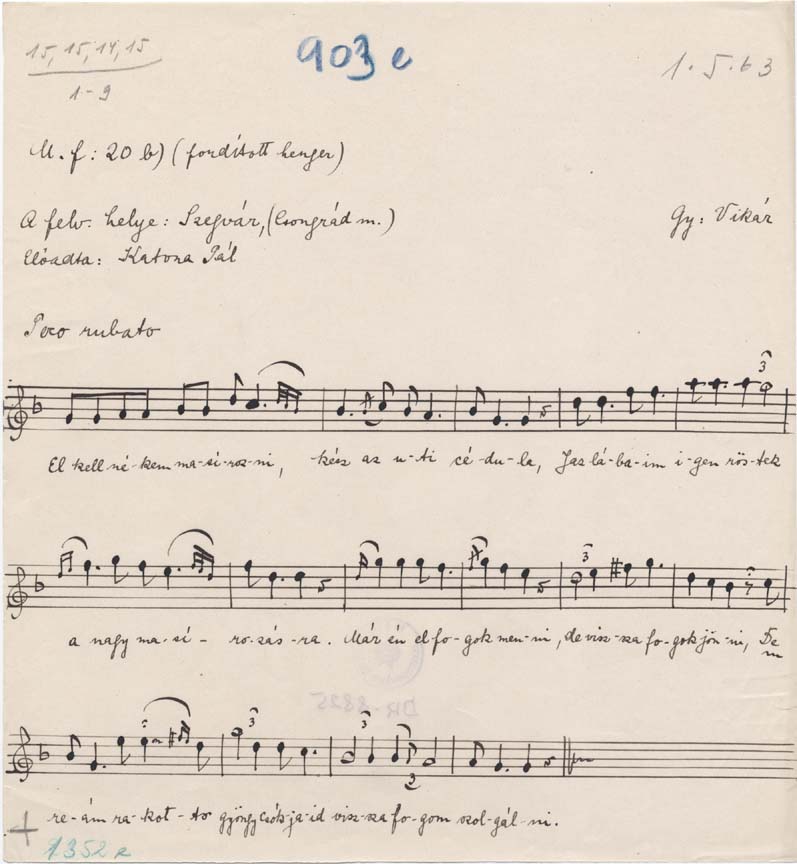 15, 15, 14, 15
1-9
903 e
1.5.63
M. f: 20 b) (fordított henger)
A felv. helye: Szegvár, (Csongrád m.)
Gy: Vikár
Előadta: Katona Pál
Poco rubato
3
El kell né-kem ma-si-roz-ni, kész az u-ti cé-du-la, Jaz lá-ba-im i-gen rös-tek
3
a nagy ma-sí-ro-zás-ra. Már én el fo-gok men-ni, de visz-sza fo-gok jön-ni, De
3 3 2
re-ám ra-kot-t gyöngycsók-ja-id visz-sza fo-gom szol-gál-ni.
+
1352
DR-8825